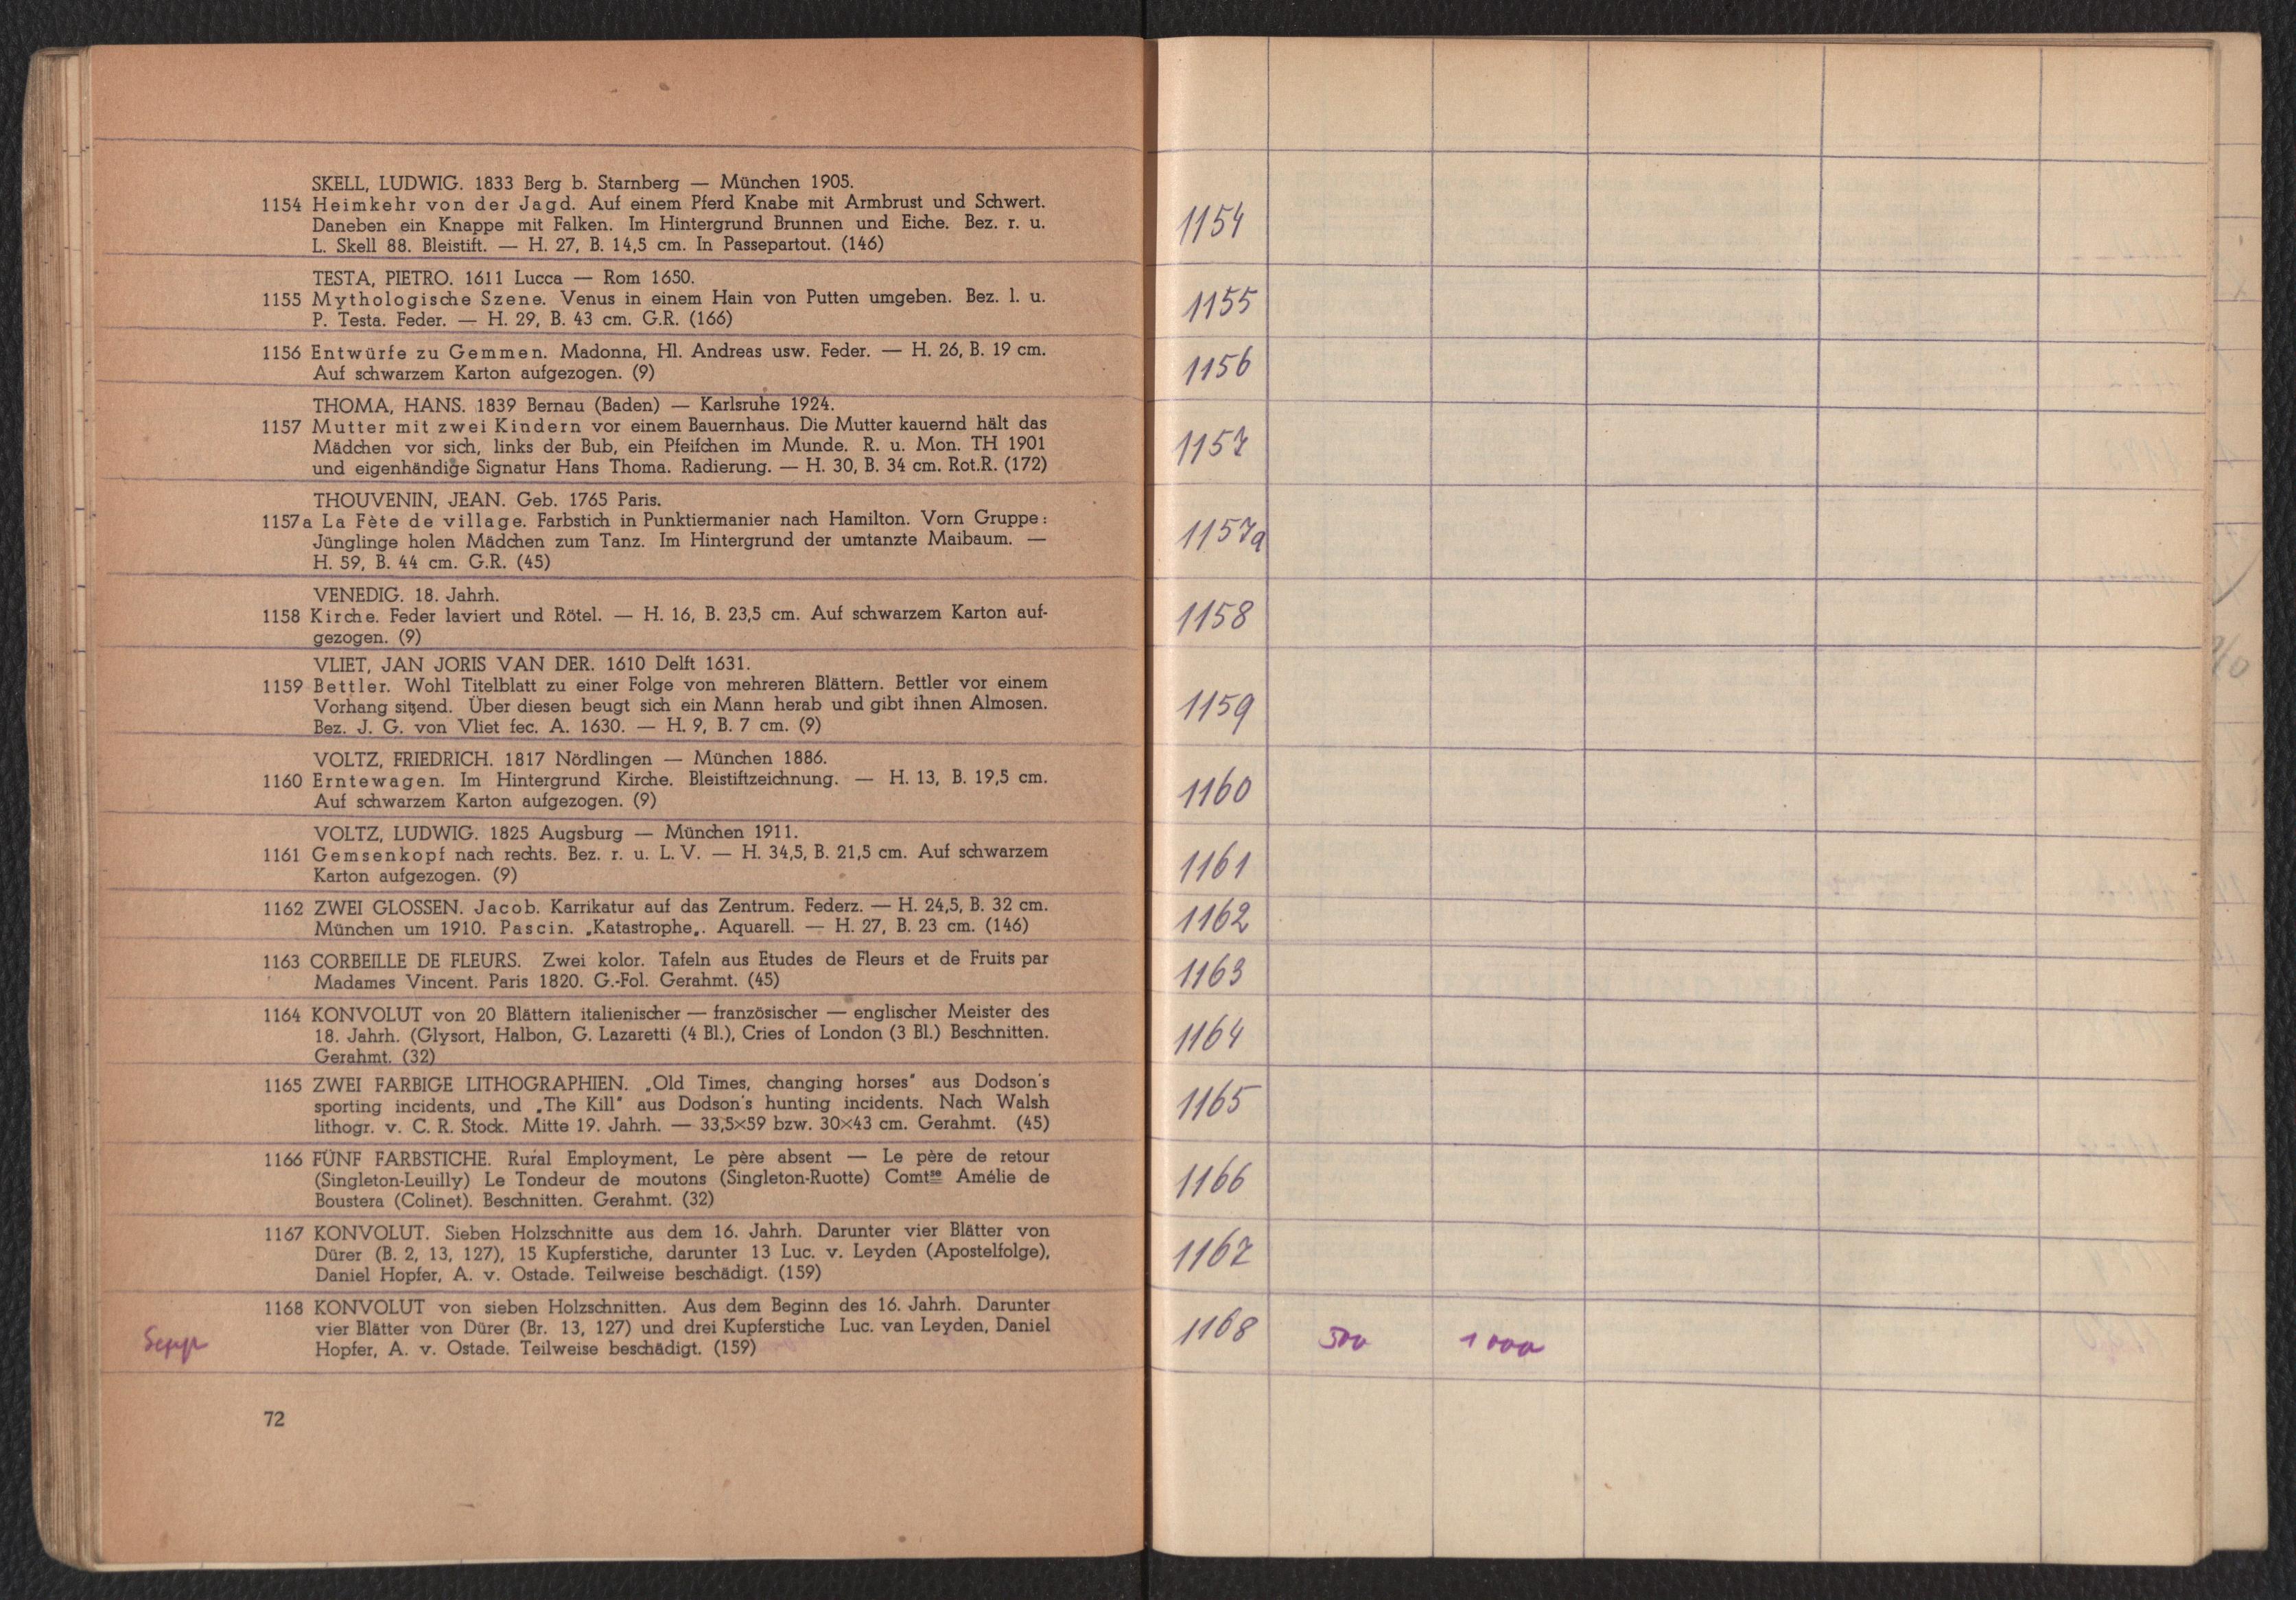 SKELL, LUDWIG. 1833 Berg b. Starnberg — München 1905.
1154 Heimkehr von der Jagd. Auf einem Pferd Knabe mit Armbrust und Schwert.
Daneben ein Knappe mit Falken. Im Hintergrund Brunnen und Eiche. Bez. r. u.
L. Skell 88. Bleistift. — H. 27, B. 14,5 cm. In Passepartout. (146)
TESTA, PIETRO. 1611 Lucca — Rom 1650.
1155 Mythologische Szene. Venus in einem Hain von Putten umgeben. Bez. l. u.
P. Testa. Feder. — H. 29, B. 43 cm. G.R. (166)
1156 Entwürfe zu Gemmen. Madonna, Hl. Andreas usw. Feder. — H. 26, B. 19 cm.
Auf schwarzem Karton aufgezogen. (9)
THOMA, HANS. 1839 Bernau (Baden) — Karlsruhe 1924.
1157 Mutter mit zwei Kindern vor einem Bauernhaus. Die Mutter kauernd hält das
Mädchen vor sich, links der Bub, ein Pfeifchen im Munde. R. u. Mon. TH 1901
und eigenhändige Signatur Hans Thoma. Radierung. — H. 30, B. 34 cm. Rot.R. (172)
THOUVENIN, JEAN. Geb. 1765 Paris.
1157a La Fète de village. Farbstich in Punktiermanier nach Hamilton. Vorn Gruppe:
Jünglinge holen Mädchen zum Tanz. Im Hintergrund der umtanzte Maibaum. —
H. 59, B. 44 cm. G.R. (45)
VENEDIG. 18. Jahrh.
1158 Kirche. Feder laviert und Rötel. — H. 16, B. 23,5 cm. Auf schwarzem Karton auf-
gezogen. (9)
VLIET, JAN JORIS VAN DER. 1610 Delft 1631.
1159 Bettler. Wohl Titelblatt zu einer Folge von mehreren Blättern. Bettler vor einem
Vorhang sitzend. Über diesen beugt sich ein Mann herab und gibt ihnen Almosen.
Bez. J. G. von Vliet fec. A. 1630. — H. 9, B. 7 cm. (9)
VOLTZ, FRIEDRICH. 1817 Nördlingen — München 1886.
1160 Erntewagen. Im Hintergrund Kirche. Bleistiftzeichnung. — H. 13, B. 19,5 cm.
Auf schwarzem Karton aufgezogen. (9)
VOLTZ, LUDWIG. 1825 Augsburg — München 1911.
1161 Gemsenkopf nach rechts. Bez. r. u. L. V. — H. 34,5, B. 21,5 cm. Auf schwarzem
Karton aufgezogen. (9)
1162 ZWEI GLOSSEN. Jacob. Karrikatur auf das Zentrum. Federz. — H. 24,5, B. 32 cm.
München um 1910. Pascin. „Katastrophe„. Aquarell. — H. 27, B. 23 cm. (146)
1163 CORBEILLE DE FLEURS. Zwei kolor. Tafeln aus Etudes de Fleurs et de Fruits par
Madames Vincent. Paris 1820. G.-Fol. Gerahmt. (45)
1164 KONVOLUT von 20 Blättern italienischer — französischer — englischer Meister des
18. Jahrh. (Glysort, Halbon, G. Lazaretti (4 Bl.), Cries of London (3 Bl.) Beschnitten.
Gerahmt. (32)
1165 ZWEI FARBIGE LITHOGRAPHIEN. „Old Times, changing horses" aus Dodson's
sporting incidents, und „The Kill" aus Dodson's hunting incidents. Nach Walsh
lithogr. v. C. R. Stock. Mitte 19. Jahrh. — 33,5×59 bzw. 30×43 cm. Gerahmt. (45)
1166 FÜNF FARBSTICHE. Rural Employment, Le père absent — Le père de retour
(Singleton-Leuilly) Le Tondeur de moutons (Singleton-Ruotte) Comtse Amélie de
Boustera (Colinet). Beschnitten. Gerahmt. (32)
1167 KONVOLUT. Sieben Holzschnitte aus dem 16. Jahrh. Darunter vier Blätter von
Dürer (B. 2, 13, 127), 15 Kupferstiche, darunter 13 Luc. v. Leyden (Apostelfolge),
Daniel Hopfer, A. v. Ostade. Teilweise beschädigt. (159)
1168 KONVOLUT von sieben Holzschnitten. Aus dem Beginn des 16. Jahrh. Darunter
vier Blätter von Dürer (Br. 13, 127) und drei Kupferstiche Luc. van Leyden, Daniel
Sepp Hopfer, A. v. Ostade. Teilweise beschädigt. (159)
72
1154
1155
1156
1157
1157a
1158
1159
1160
1161
1162
1163
1164
1165
1166
1167
1168 500 1000